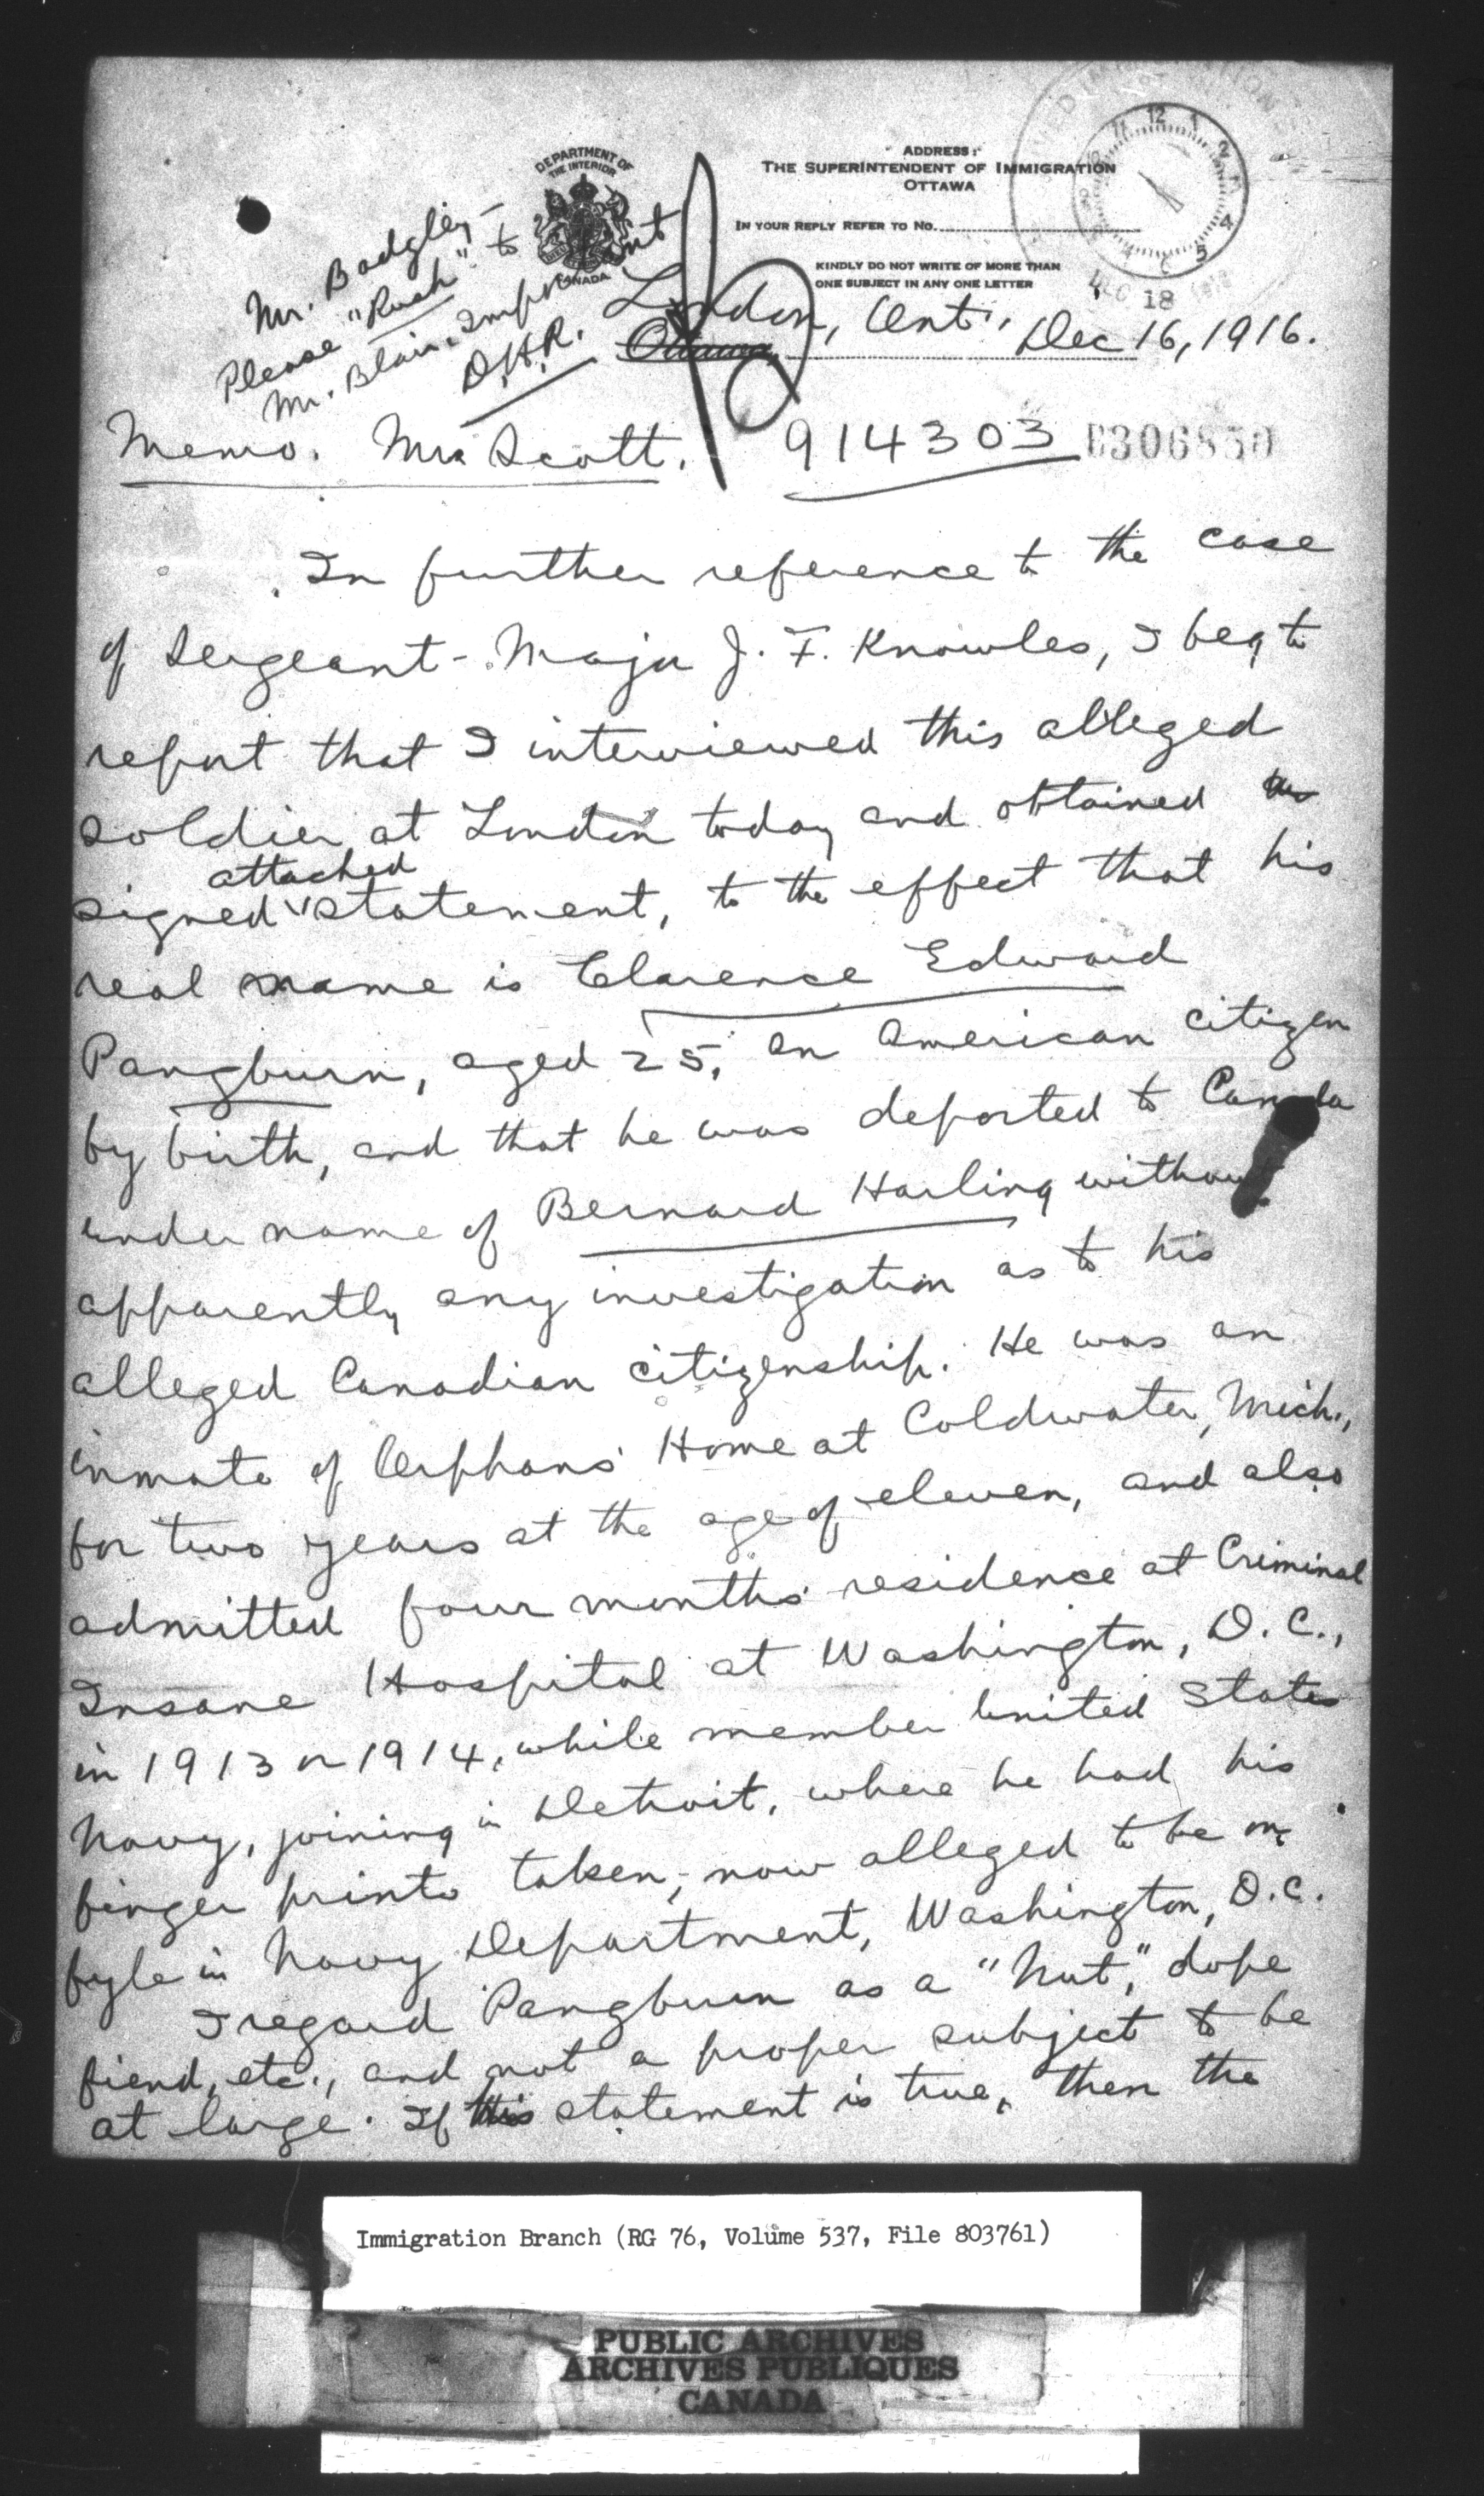 DEPARTMENT OF
THE INTERIOR
CANADA
ADDRESS:
THE SUPERINTENDENT OF IMMIGRATION
OTTAWA
IN YOUR REPLY REFER TO No.
KINDLY DO NOT WRITE OF MORE THAN
ONE SUBJECT IN ANY ONE LETTER
DEC 18
Mr. Badgley -
Please "Rush" to
Mr. Blair. Important
D.H.R.
London, Ont., Dec 16, 1916.
Ottawa,
Memo. Mr Scott. 914303 306850
In further reference to the case
of Sergeant-Major J. F. Knowles, I beg to
report that I interviewed this alleged
soldier at London today and obtained
attached
signed statement, to the effect that his
real name is Clarence Edward
Pangburn, aged 25, an American citizen
by birth, and that he was deported to Canada
under name of Bernard Harling without
apparently any investigation as to his
alleged Canadian citizenship. He was an
inmate of Orphans' Home at Coldwater, Mich.,
for two years at the age of eleven, and also
admitted four months' residence at Criminal
Insane Hospital at Washington, D.C.,
in 1913 or 1914, while member United States
Navy, joining in Detroit, where he had his
finger prints taken, now alleged to be on
fyle in Navy Department, Washington, D.C.
I regard Pangburn as a "Nut," dope
fiend, etc., and not a proper subject to be
at large. If this statement is true, then the
Immigration Branch (RG 76, Volume 537, File 803761)
PUBLIC ARCHIVES
ARCHIVES PUBLIQUES
CANADA